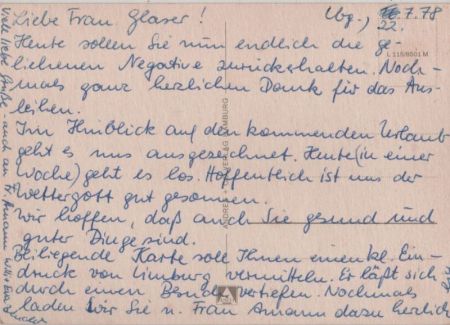 Liebe Frau Glaser!
Lbg., 22.7.78
Heute sollen Sie nun endlich die ge-
liehenen Negative zurückerhalten. Noch-
mals ganz herzlichen Dank für das Aus-
leihen.
Im Hinblick auf den kommenden Urlaub
geht es uns ausgezeichnet. Heute (in einer
Woche) geht es los. Hoffentlich ist uns der
Wettergott gut gesonnen.
Wir hoffen, daß auch Sie gesund und
guter Dinge sind.
Beiliegende Karte soll Ihnen einen kl. Ein-
druck von Limburg vermitteln. Er läßt sich
durch einen Besuch vertiefen. Nochmals
laden wir Sie u. Frau Amann dazu herzlich
Viele liebe Grüße - auch an Fr. Amann Willi + Eva
L 115/6501 M
VERLAG LIMBURG